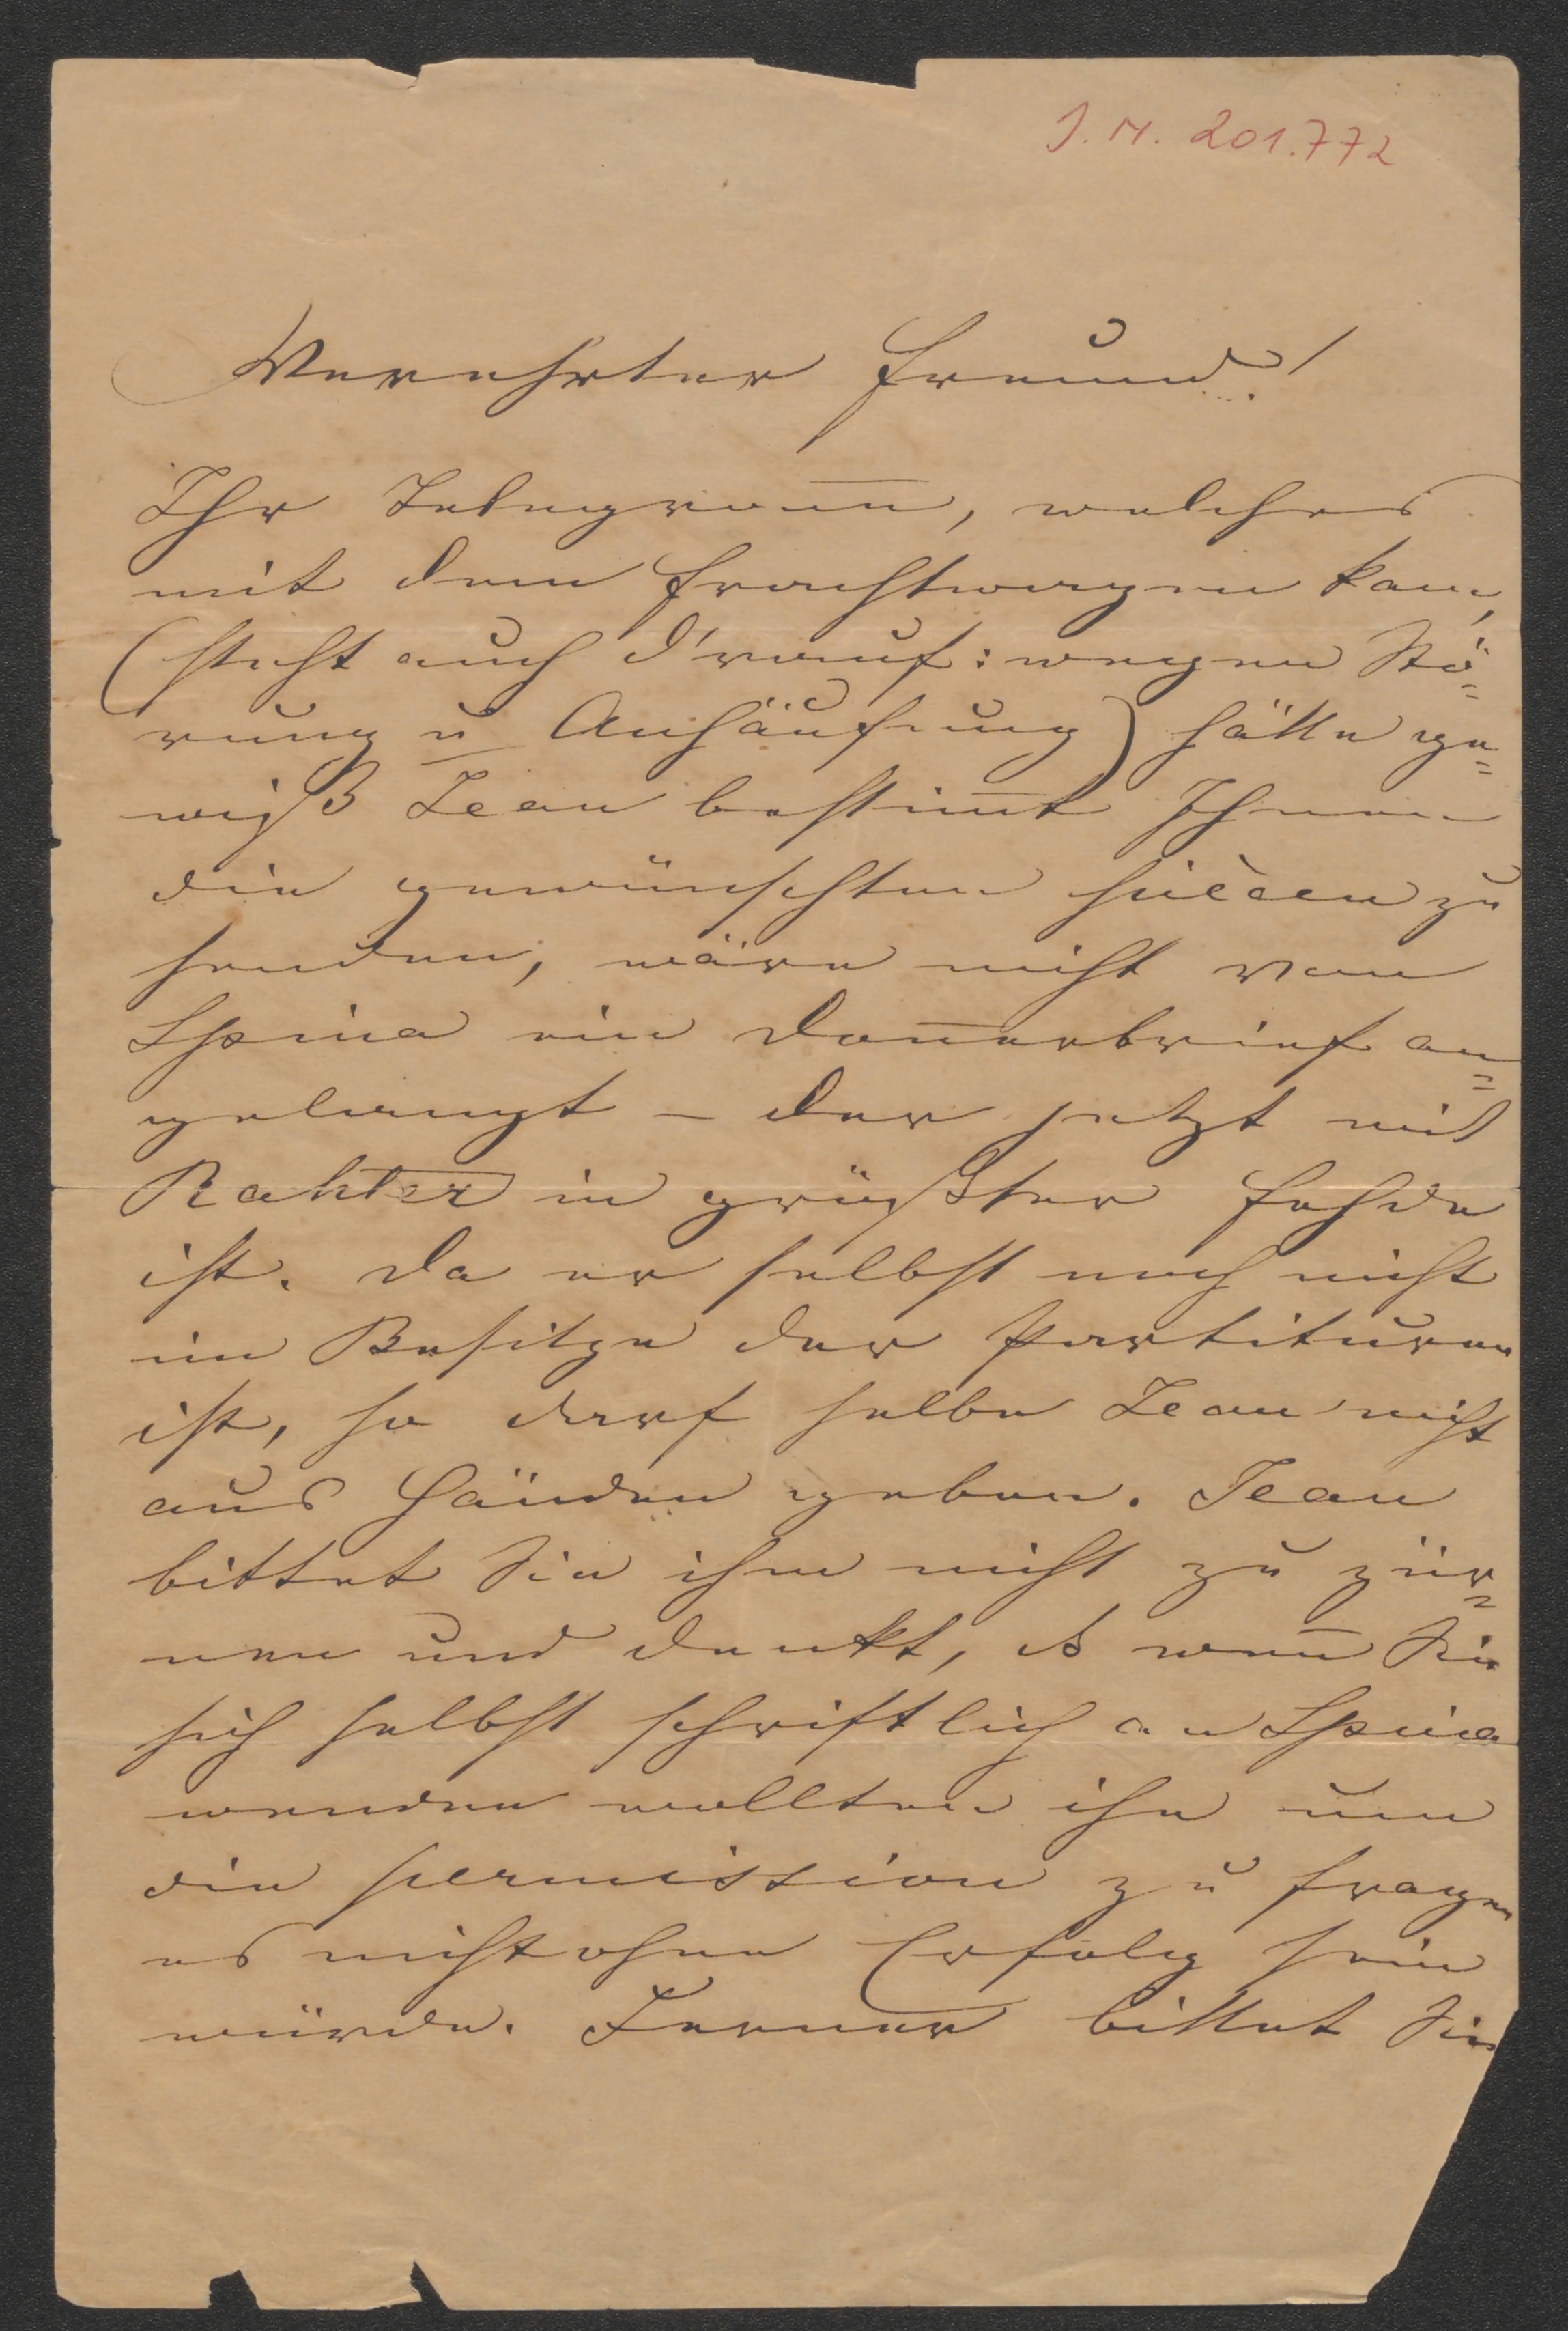 J. N. 201.772
Verehrter Freund!
Ihr Telegram̅, welches
mit dem Frachtwagen kam,
(steht auch d'rauf: wegen Stö=
rung u Anhäufung) hätte ge=
wiß Jean bestim̅t Ihnen
die gewünschten piècen zu
senden, wäre nicht von
Spina ein Don̅erbrief an=
gelangt – der jetzt mit
Rahter in größter Fehde
ist. Da er selbst noch nicht
im Besitze der Partituren
ist, so darf selbe Jean nicht
aus Händen geben. Jean
bittet Sie ihm nicht zu zür=
nen und denkt, daß wen̅ Sie
sich selbst schriftlich an Spina
wenden wollten ihn um
die permission zu fragen
es nicht ohne Erfolg sein
würde. Ferner bittet Sie